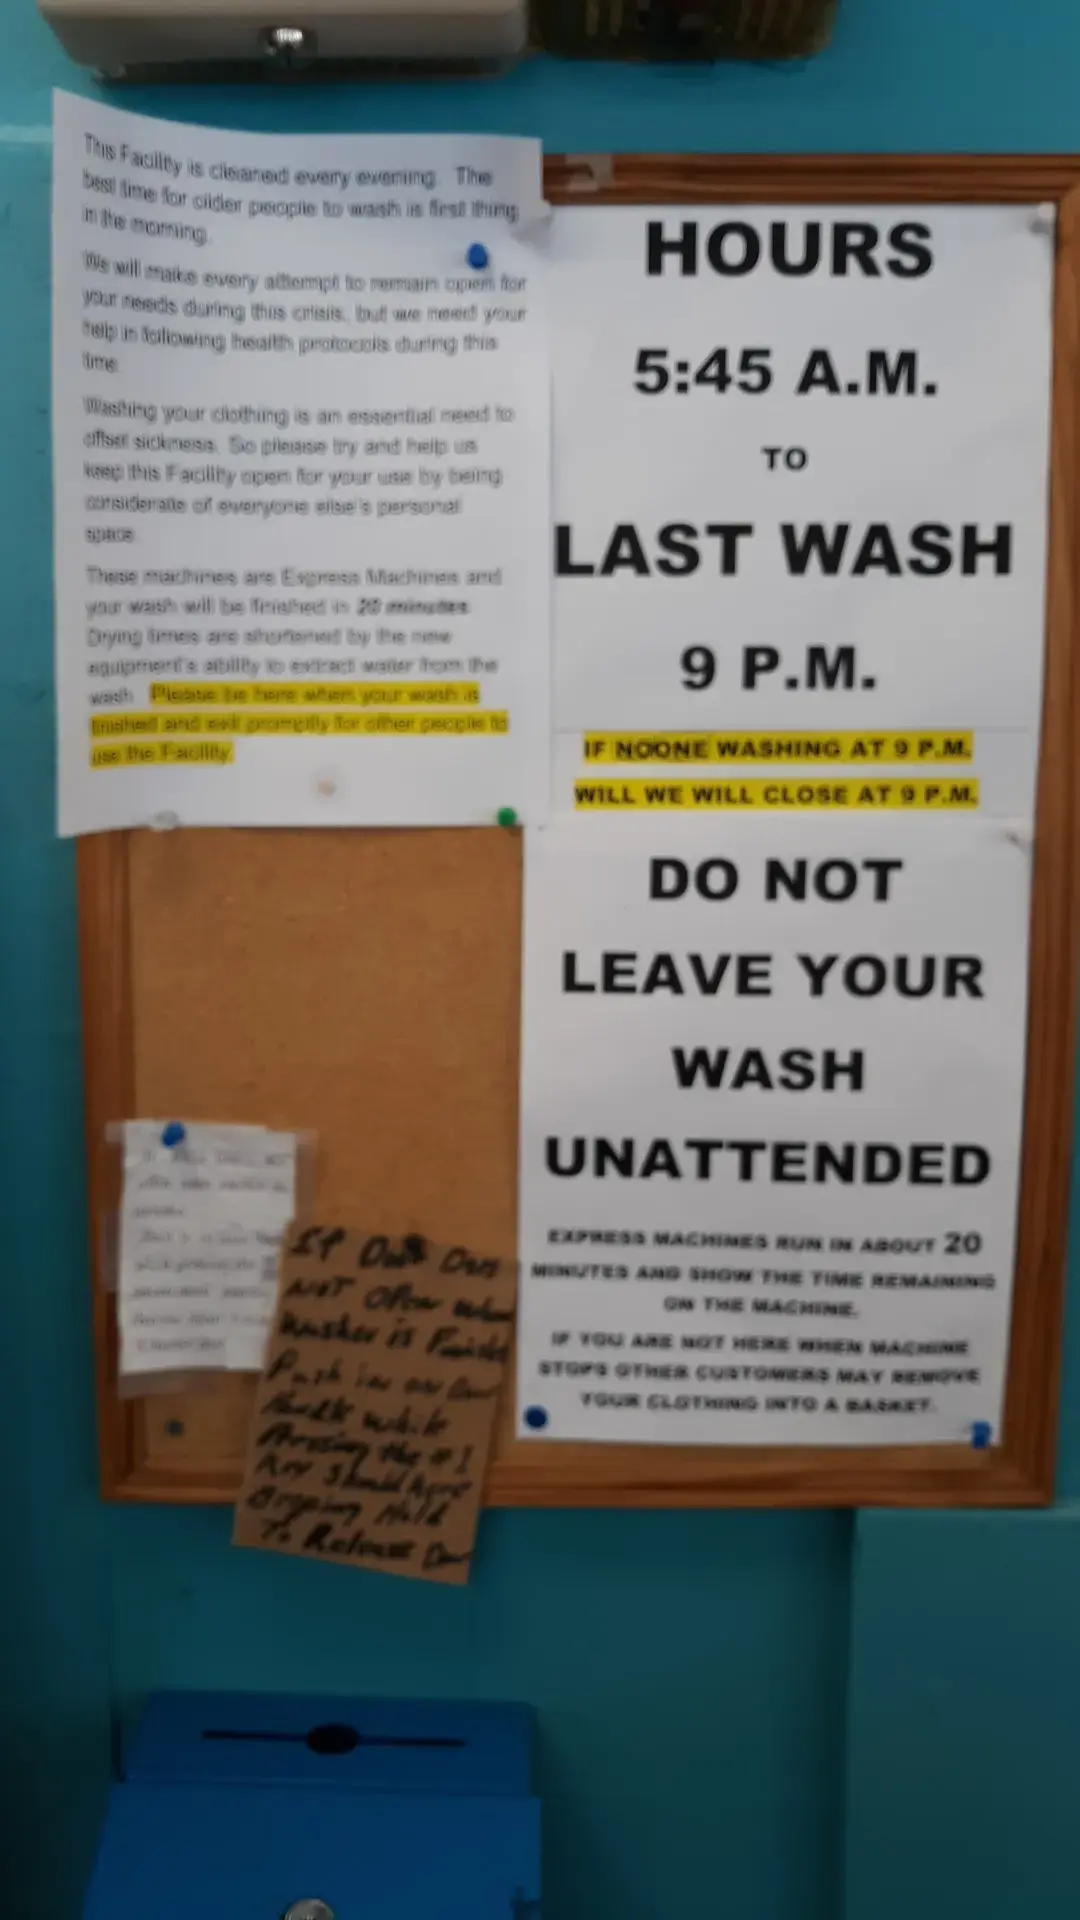 This Facility is cleaned every evening. The
best time for older people to wash is first thing
in the morning.
We will make every attempt to remain open for
your needs during this crisis, but we need your
help in following health protocols during this
time.
Washing your clothing is an essential need to
offset sickness. So please try and help us
keep this Facility open for your use by being
considerate of everyone else's personal
space.
These machines are Express Machines and
your wash will be finished in 20 minutes.
Drying times are shortened by the new
equipment's ability to extract water from the
wash. Please be here when your wash is
finished and exit promptly for other people to
use the Facility.
HOURS
5:45 A.M.
TO
LAST WASH
9 P.M.
IF NOONE WASHING AT 9 P.M.
WILL WE WILL CLOSE AT 9 P.M.
DO NOT
LEAVE YOUR
WASH
UNATTENDED
EXPRESS MACHINES RUN IN ABOUT 20
MINUTES AND SHOW THE TIME REMAINING
ON THE MACHINE.
IF YOU ARE NOT HERE WHEN MACHINE
STOPS OTHER CUSTOMERS MAY REMOVE
YOUR CLOTHING INTO A BASKET.
If Door Does
NOT Open when
Washer is Finished
Push in on Door
Handle while
Pressing the #1
Key Should
To Release Door